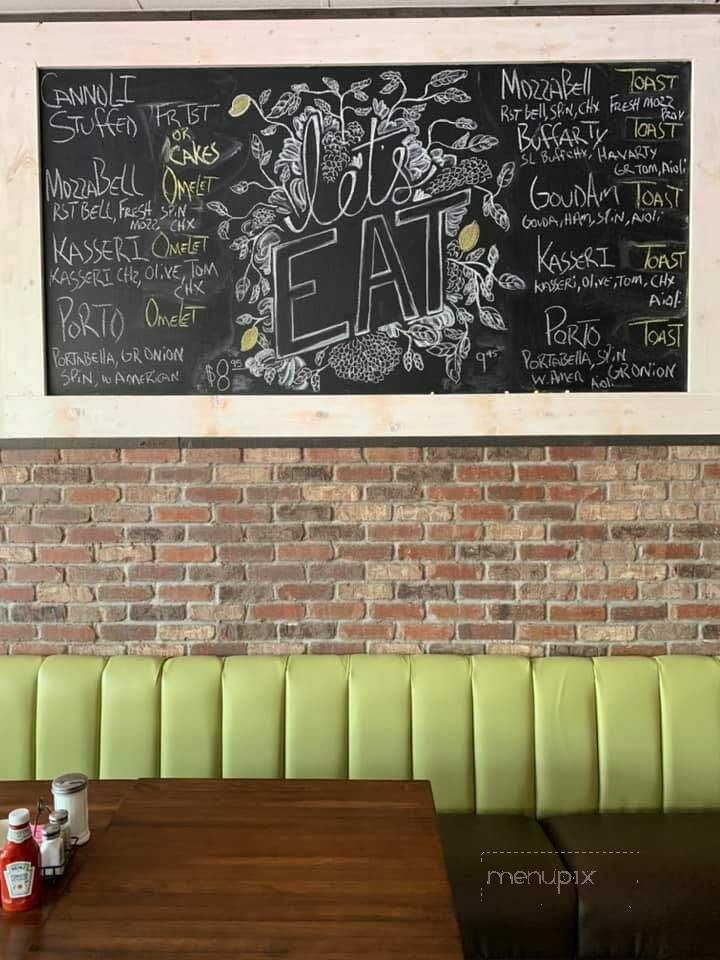 CANNOLI
STUFFED FR TST
OR
CAKES
MOZZABELL OMELET
RST BELL, FRESH SPIN
MOZZ CHX
KASSERI OMELET
KASSERI CHZ, OLIVE, TOM
CHX
PORTO OMELET
PORTABELLA, GR ONION
SPIN, W AMERICAN
$8.95
let's
EAT
9.95
MOZZABELL TOAST
RST BELL, SPIN, CHX FRESH MOZZ
PROV
BUFFARTY TOAST
SL BUFF CHX, HAVARTY
GR TOM, AIOLI
GOUDAM TOAST
GOUDA, HAM, SPIN, AIOLI
KASSERI TOAST
KASSERI, OLIVE, TOM, CHX
AIOLI
PORTO TOAST
PORTABELLA, SPIN
W. AMER GR ONION
AIOLI
HEINZ
TOMATO
KETCHUP
menupix